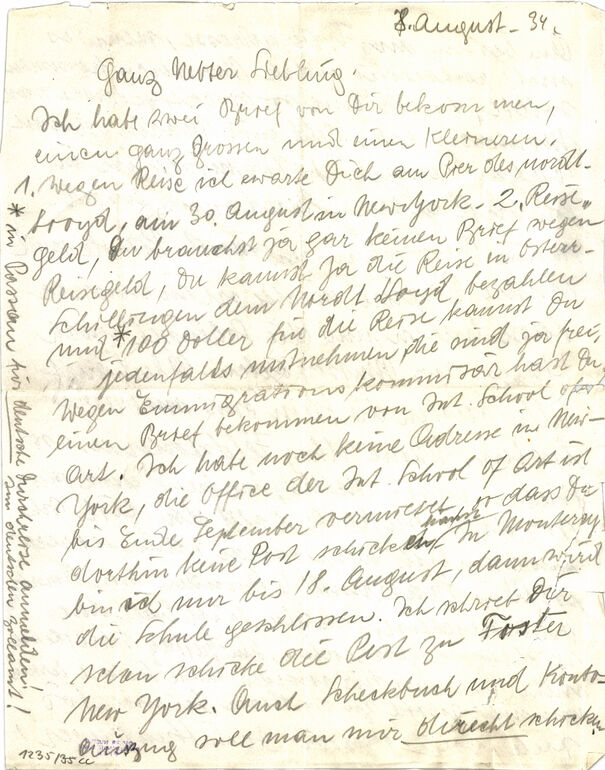 8. August - 34.
Ganz Netter Liebling.
Ich habe zwei Brief von Dir bekommen,
einen ganz grossen und einen kleineren.
1. Wegen Reise ich erwarte Dich am Pier des Nordt-
lloyd, am 30. August in New York - 2. "Reise"
Geld, Du brauchst ja gar keinen Brief wegen
Reisegeld, Du kannst ja die Reise in österr-
Schillingen dem Nordt Lloyd bezahlen
und * 100 Doller für die Reise kannst Du
jedenfalls mitnehmen, die sind ja frei,
Wegen Emmigrations kommisär hast Du
einen Brief bekommen von Int. School of
Art. Ich habe noch keine Adresse in New-
York, die Office der Int. School of Art ist
bis Ende September vermietet so dass Du
dorthin keine Post schicken kannst In Monterey
bin ich nur bis 18. August, dann wird
die Schule geschlossen. Ich schrieb Dir
schon schicke die Post zu Foster
New York. Auch Scheckbuch und Konto-
Auszug soll man mir direcht schicken
* in Passau für deutsche anmelden!
am deutschen Zollamt!
1235/35 cc